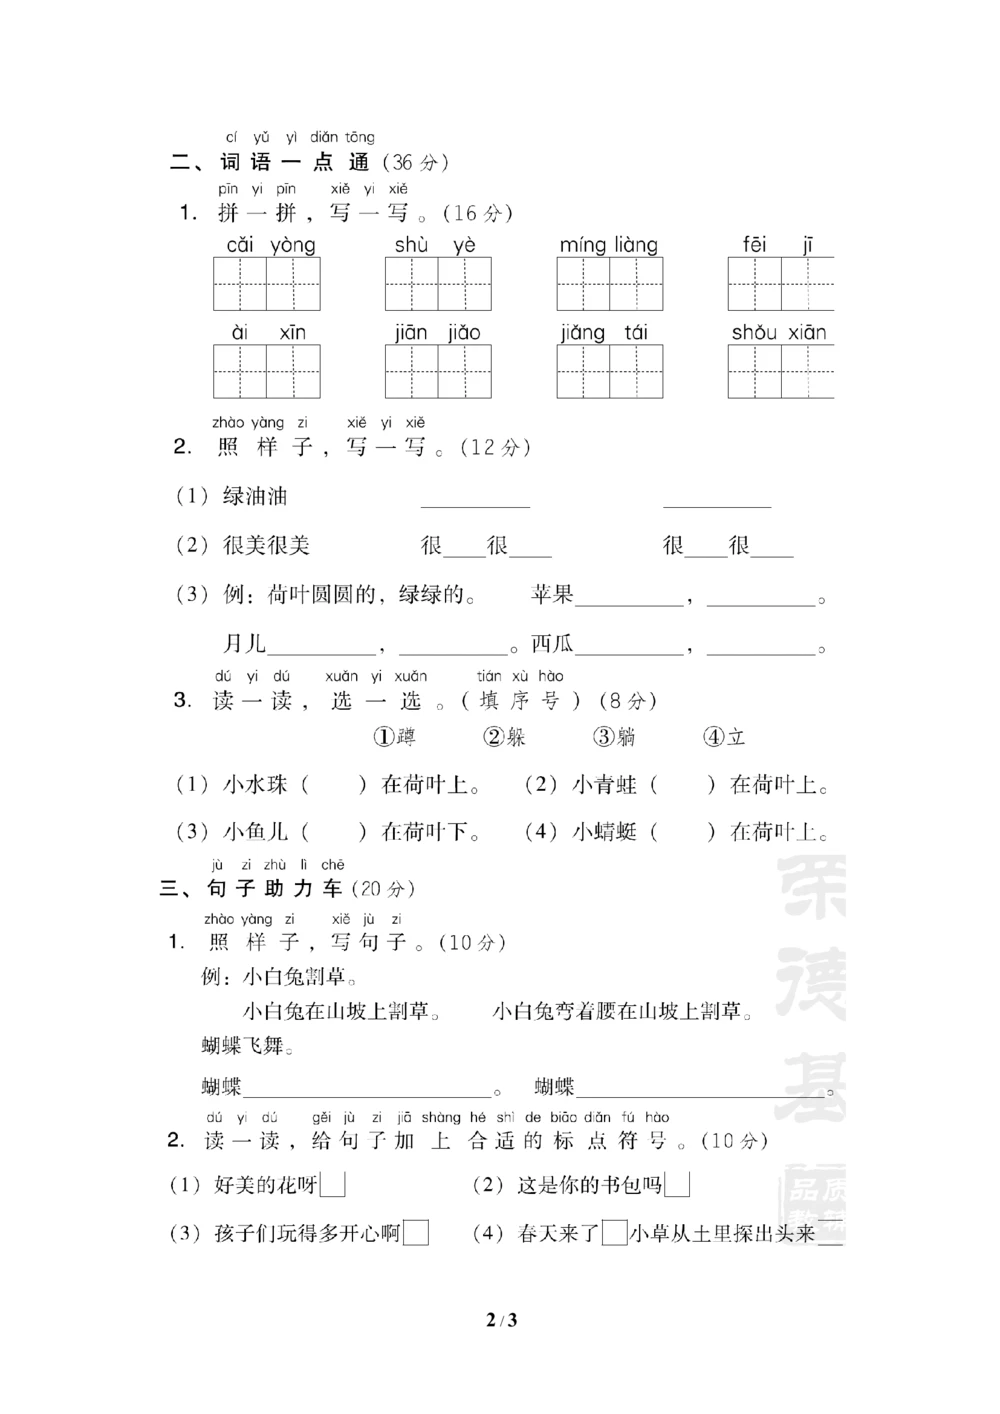 cí yǔ yì diǎn tōng
二、词语一点通(36分)
pīn yi pīn xiě yi xiě
1. 拼一拼，写一写。(16分)
cǎi yòng shù yè míng liàng fēi jī
ài xīn jiān jiǎo jiǎng tái shǒu xiān
zhào yàng zi xiě yi xiě
2. 照样子，写一写。(12分)
(1) 绿油油 __________ __________
(2) 很美很美 很____很____ 很____很____
(3) 例：荷叶圆圆的，绿绿的。 苹果__________，__________。
月儿__________，__________。西瓜__________，__________。
dú yi dú xuǎn yi xuǎn tián xù hào
3. 读一读，选一选。(填序号)(8分)
①蹲 ②躲 ③躺 ④立
(1) 小水珠( )在荷叶上。 (2) 小青蛙( )在荷叶上。
(3) 小鱼儿( )在荷叶下。 (4) 小蜻蜓( )在荷叶上。
jù zi zhù lì chē
三、句子助力车(20分)
zhào yàng zi xiě jù zi
1. 照样子，写句子。(10分)
例：小白兔割草。
小白兔在山坡上割草。 小白兔弯着腰在山坡上割草。
蝴蝶飞舞。
蝴蝶____________________。 蝴蝶____________________。
dú yi dú gěi jù zi jiā shàng hé shì de biāo diǎn fú hào
2. 读一读，给句子加上合适的标点符号。(10分)
(1) 好美的花呀□ (2) 这是你的书包吗□
(3) 孩子们玩得多开心啊□ (4) 春天来了□小草从土里探出头来
荣德基
品质
教辅
2 / 3